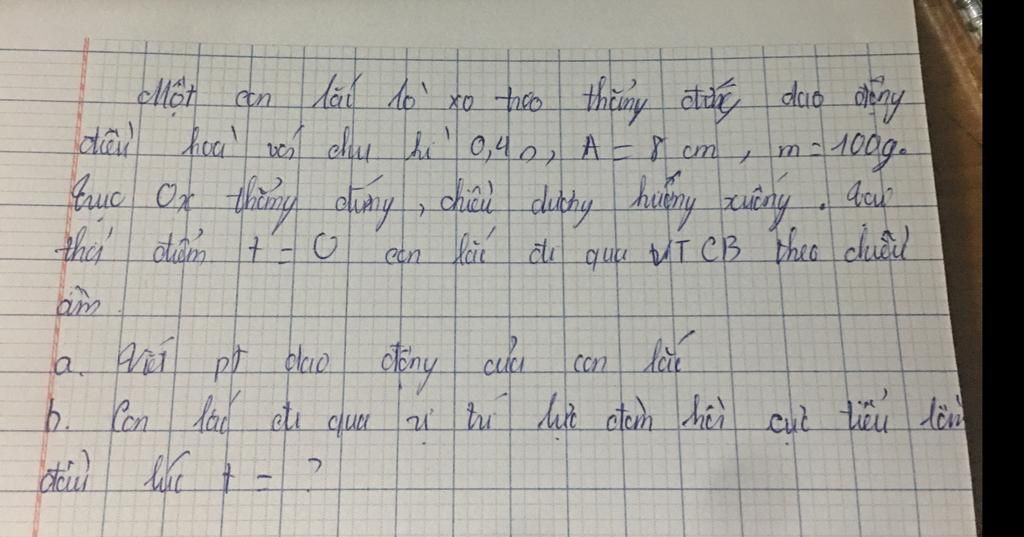 Một con lắc lò xo treo thẳng đứng dao động
điều hoà với chu kì 0,4s, A = 8 cm, m = 100g.
trục Ox thẳng đứng, chiều dương hướng xuống. Tại
thời điểm t = 0 con lắc đi qua VTCB theo chiều
âm.
a. Viết pt dao động của con lắc
b. Con lắc đi qua vị trí lực đàn hồi cực tiểu lần
đầu lúc t = ?